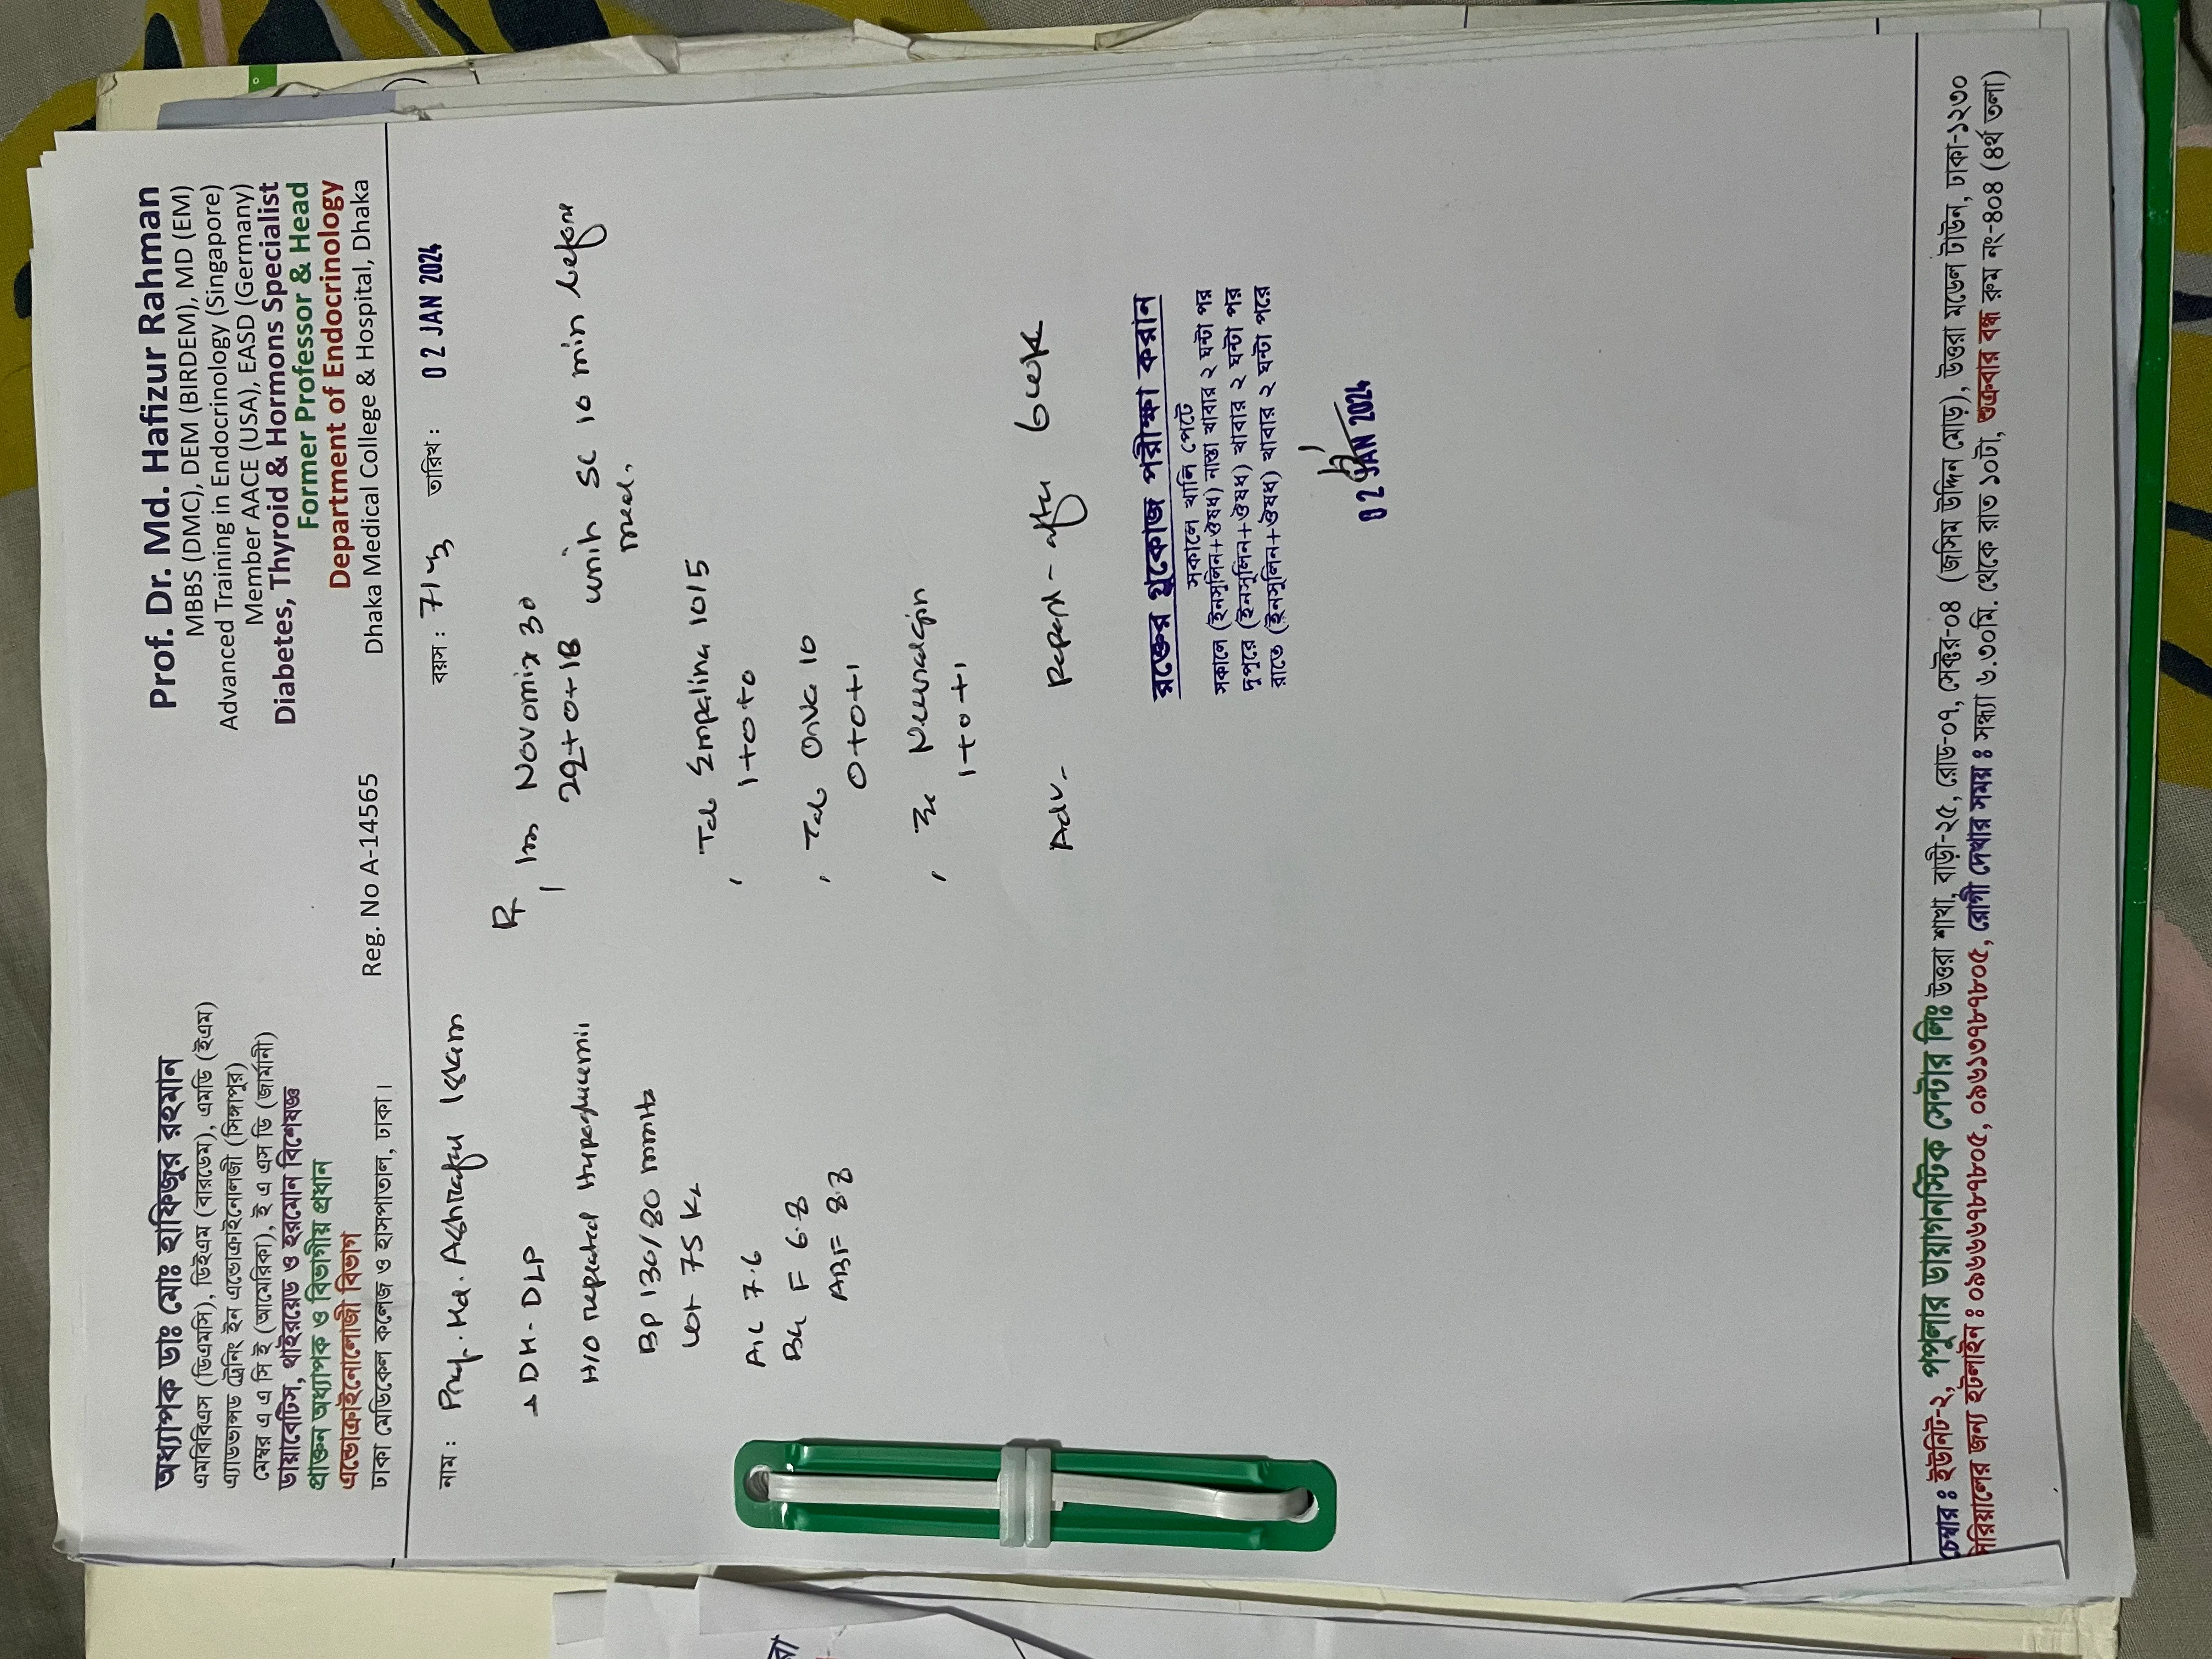 অধ্যাপক ডাঃ মোঃ হাফিজুর রহমান
এমবিবিএস (ডিএমসি), ডিইএম (বারডেম), এমডি (ইএম)
এ্যাডভান্সড ট্রেনিং ইন এন্ডোক্রাইনোলজী (সিঙ্গাপুর)
মেম্বর এ এ সি ই (আমেরিকা), ই এ এস ডি (জার্মানী)
ডায়াবেটিস, থাইরয়েড ও হরমোন বিশেষজ্ঞ
প্রাক্তন অধ্যাপক ও বিভাগীয় প্রধান
এন্ডোক্রাইনোলোজী বিভাগ
ঢাকা মেডিকেল কলেজ ও হাসপাতাল, ঢাকা।
Reg. No A-14565
Prof. Dr. Md. Hafizur Rahman
MBBS (DMC), DEM (BIRDEM), MD (EM)
Advanced Training in Endocrinology (Singapore)
Member AACE (USA), EASD (Germany)
Diabetes, Thyroid & Hormons Specialist
Former Professor & Head
Department of Endocrinology
Dhaka Medical College & Hospital, Dhaka
নাম : Md. Ashraful Islam বয়স : 71 তারিখ : 02 JAN 2024
DM - DLP
H/O repeated
BP 130/80 mmHg
wt 75 Kg
A1c 7.6
F 6.8
ABF 8.8
Rx
Novomix 30
22+0+18 units SC 10 min before
meal.
Tab Empalina 10/5
1+0+0
Tab 10
0+0+1
1+0+1
Adv- Repeat - after 6 week
রক্তের গ্লুকোজ পরীক্ষা করান
সকালে খালি পেটে
সকালে (ইনসুলিন+ঔষধ) নাস্তা খাবার ২ ঘন্টা পর
দুপুরে (ইনসুলিন+ঔষধ) খাবার ২ ঘন্টা পর
রাতে (ইনসুলিন+ঔষধ) খাবার ২ ঘন্টা পরে
02 JAN 2024
চেম্বার : ইউনিট-২, পপুলার ডায়াগনস্টিক সেন্টার লিঃ উত্তরা শাখা, বাড়ী-২৫, রোড-০৭, সেক্টর-০৪ (জসিম উদ্দিন মোড়), উত্তরা মডেল টাউন, ঢাকা-১২৩০
সিরিয়ালের জন্য হটলাইন : ০৯৬৬৬৭৮৭৮০৫, ০৯৬১৩৭৮৭৮০৫, রোগী দেখার সময় : সন্ধ্যা ৬.৩০মি. থেকে রাত ১০টা, শুক্রবার বন্ধ রুম নং-৪০৪ (৪র্থ তলা)